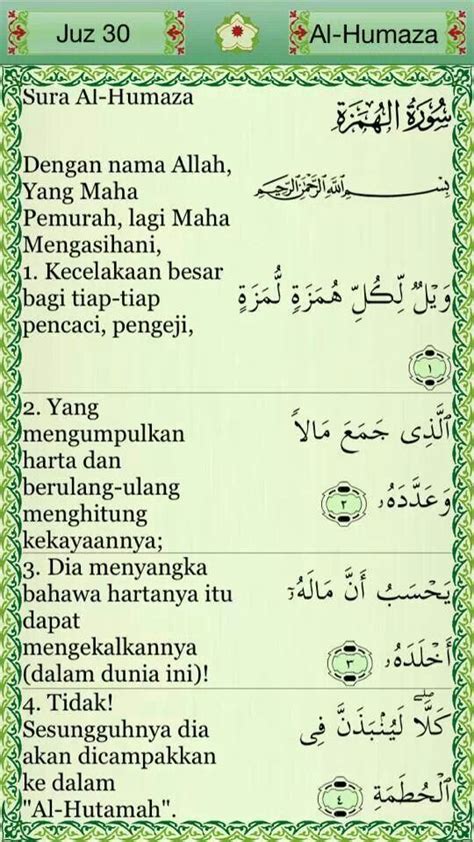 Juz 30
Al-Humaza
Sura Al-Humaza
سُورَةُ الهُمَزَةِ
Dengan nama Allah,
Yang Maha
Pemurah, lagi Maha
Mengasihani,
بِسْمِ اللَّهِ الرَّحْمَٰنِ الرَّحِيمِ
1. Kecelakaan besar
bagi tiap-tiap
pencaci, pengeji,
وَيْلٌ لِّكُلِّ هُمَزَةٍ لُّمَزَةٍ
١
2. Yang
mengumpulkan
harta dan
berulang-ulang
menghitung
kekayaannya;
ٱلَّذِى جَمَعَ مَالاً
وَعَدَّدَهُۥ ٢
3. Dia menyangka
bahawa hartanya itu
dapat
mengekalkannya
(dalam dunia ini)!
يَحْسَبُ أَنَّ مَالَهُۥٓ
أَخْلَدَهُۥ ٣
4. Tidak!
Sesungguhnya dia
akan dicampakkan
ke dalam
"Al-Hutamah".
كَلَّا ۖ لَيُنۢبَذَنَّ فِى
ٱلْحُطَمَةِ ٤